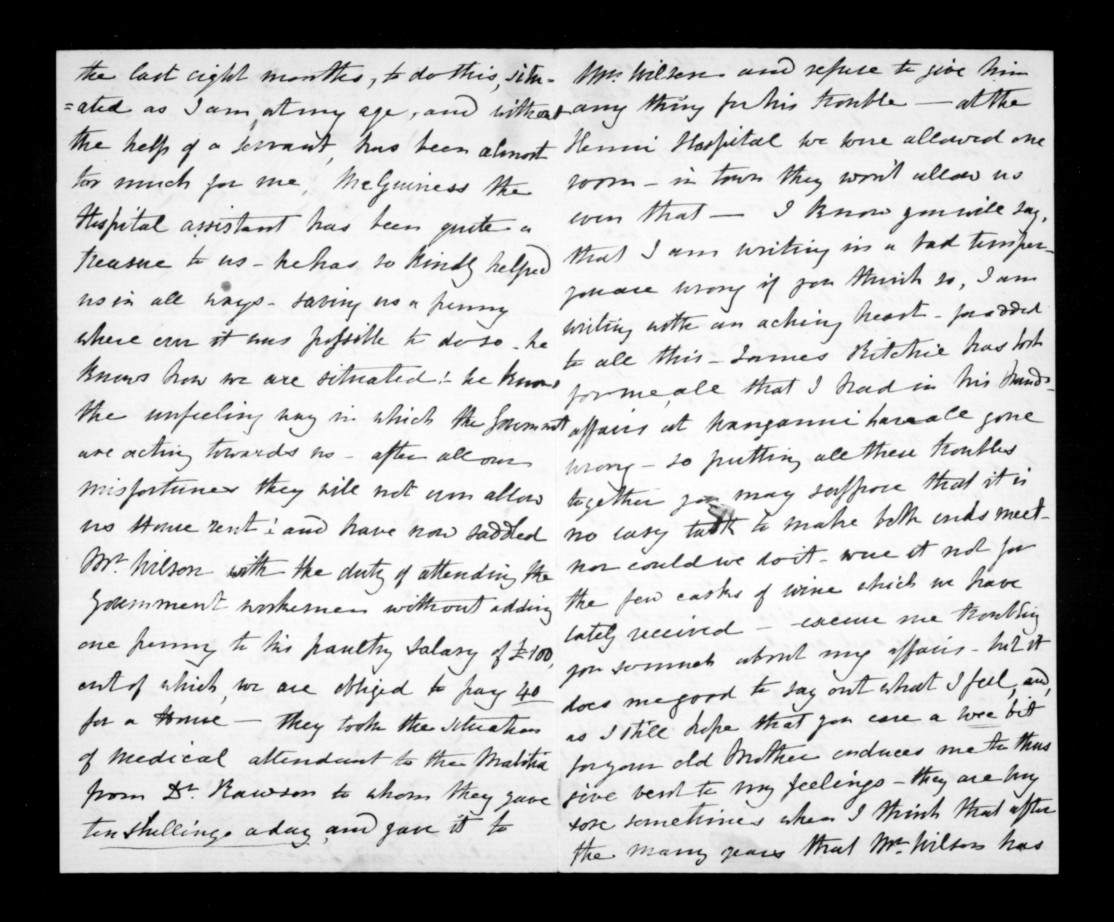 the last eight months, to do this, situ-
=ated as I am, at my age, and without
the help of a servant, has been almost
too much for me, McGuiness the
Hospital assistant has been quite a
treasure to us - he has so kindly helped
us in all ways - saving us a penny
where ever it was possible to do so - he
knows how we are situated! he knows
the unfeeling way in which the Government
are acting towards us - after all our
misfortunes they will not even allow
us House rent! and have now saddled
Mr. Wilson with the duty of attending the
Government workmen without adding
one penny to his paultry salary of £100,
out of which, we are obliged to pay 40
for a House — they took the situation
of medical attendant to the Malitia
from Dr. Rawson to whom they gave
ten shillings a day, and gave it to
Mr. Wilson and refuse to give him
any thing for his trouble — at the
Henui Hospital we were allowed one
room - in town they won't allow us
even that — I know you will say,
that I am writing in a bad temper -
you are wrong if you think so, I am
writing with an aching heart - for added
to all this - James Ritchie has lost
for me, all that I had in his hands -
affairs at Wanganui have all gone
wrong - so putting all these troubles
together you may suppose that it is
no easy task to make both ends meet -
nor could we do it - were it not for
the few casks of wine which we have
lately received — excuse me troubling
you so much about my affairs - but it
does me good to say out what I feel, and,
as I still hope that you care a wee bit
for your old Mother enduces me to thus
give vent to my feelings - they are very
sore sometimes when I think that after
the many years that Mr. Wilson has